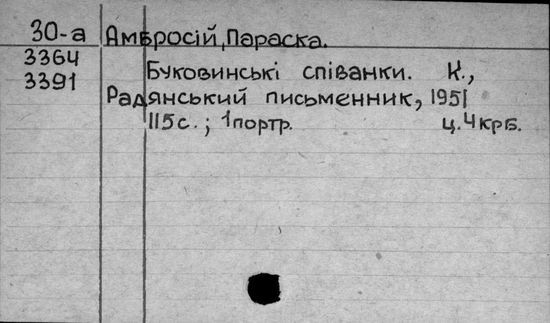 30-а Амбросій, Параска.
3364
3391 Буковинські співанки. К.,
Радянський письменник, 1951
115с.; 1портр. ц.4крб.